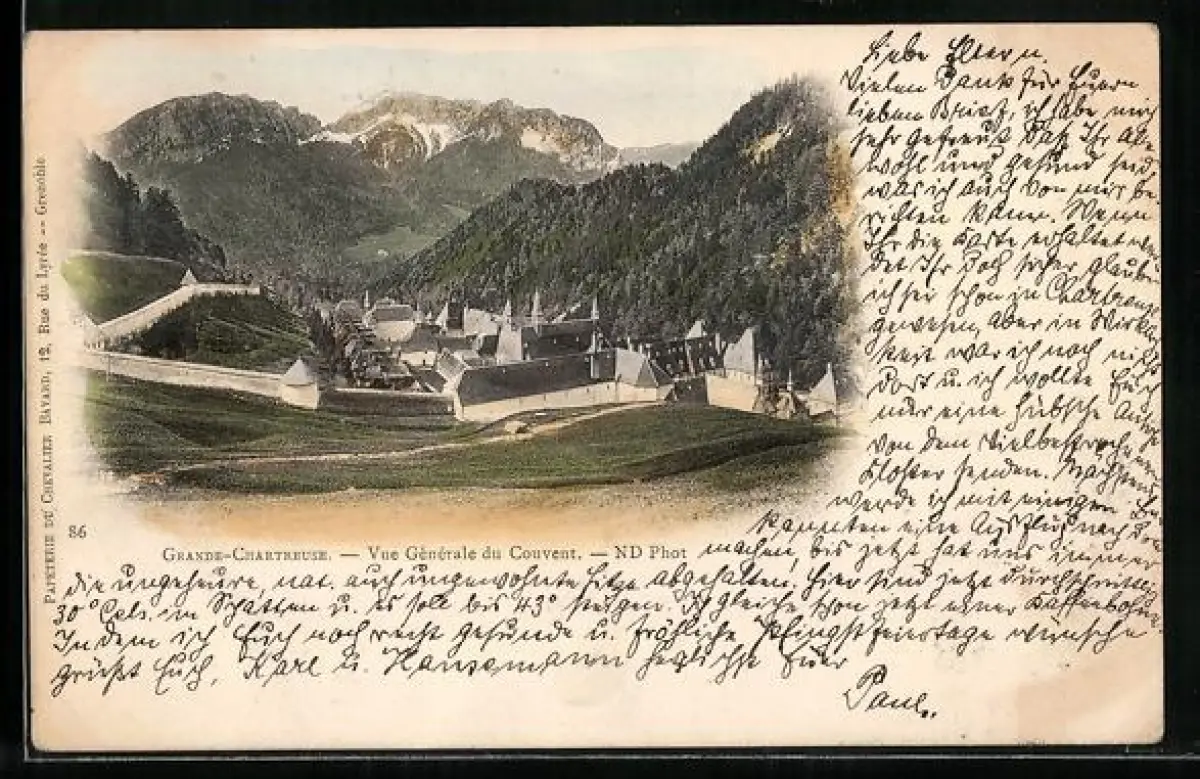 Liebe Eltern.
Vielen Dank für Euern
lieben Brief, ich habe mich
sehr gefreut daß Ihr alle
wohl und gesund seid,
was ich auch von mir be
richten kann. Wenn
Ihr die Karte erhaltet wer
det Ihr doch sicher glauben
ich sei schon in Chartreuse
gewesen, aber in Wirklich
keit war ich noch nicht
dort u. ich wollte Euch
nur eine hübsche Ansicht
von dem vielbesprochenen
Kloster senden. Nächstens
werde ich mit einigen Be
kannten eine Ausflug nach dort
machen, bis jetzt hat uns immer
die ungeheure, nat. auch ungewohnte Hitze abgehalten. Hier sind jetzt durchschnittlich
30° Cels. im Schatten u. es soll bis 43° steigen. Ich gleiche schon jetzt einer Kaffeebohne.
In dem ich Euch noch recht gesunde u. fröhliche Pfingstfeiertage wünsche
grüßt Euch, Karl u. Hansemann herzlichst Euer
Paul.
86
GRANDE-CHARTREUSE. — Vue Générale du Couvent. — ND Phot
PAPETERIE DU CHEVALIER BAYARD, 12, Rue du Lycée -- Grenoble